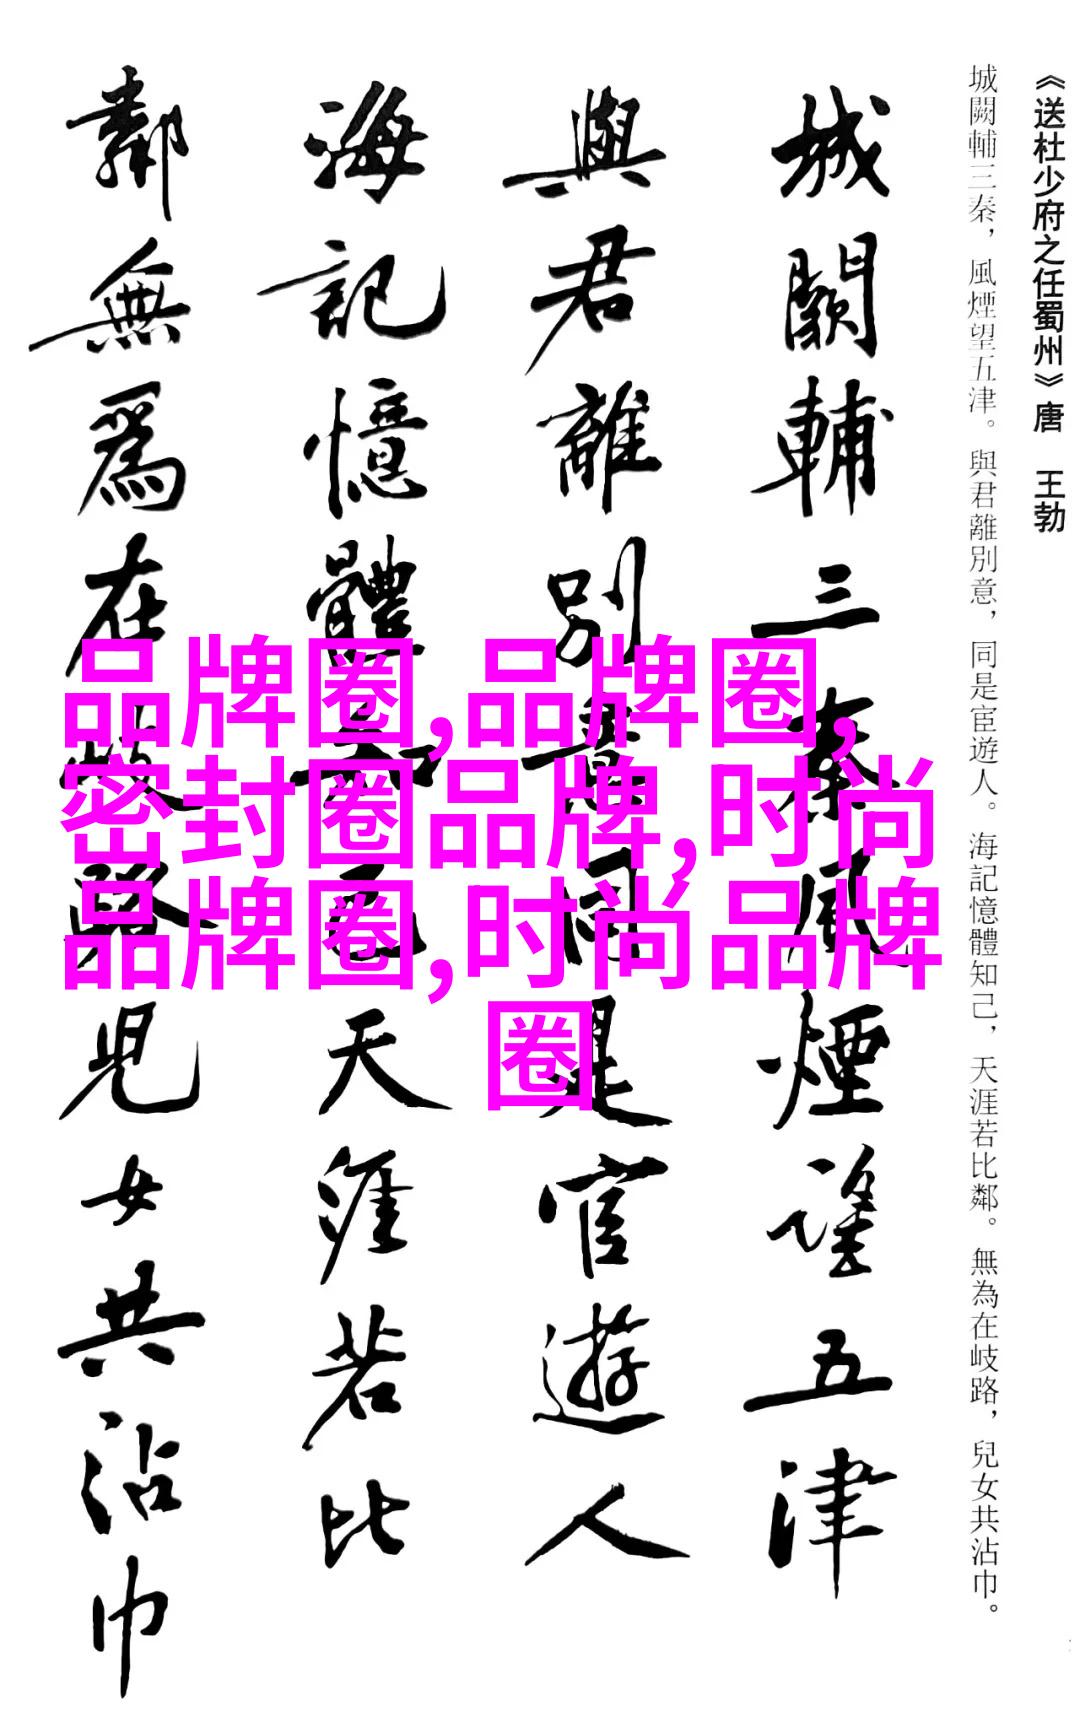 《送杜少府之任蜀州》唐 王勃
城闕輔三秦，風煙望五津。與君離別意，同是宦遊人。海記憶體知己，天涯若比鄰。無為在岐路，兒女共沾巾。
城闕輔三秦風煙望五津
與君離別意同是宦遊人
海記憶體知己天涯若比
鄰無爲在岐路兒女共沾巾
品牌圈,品牌圈,
密封圈品牌,时尚
品牌圈,时尚品牌
圈